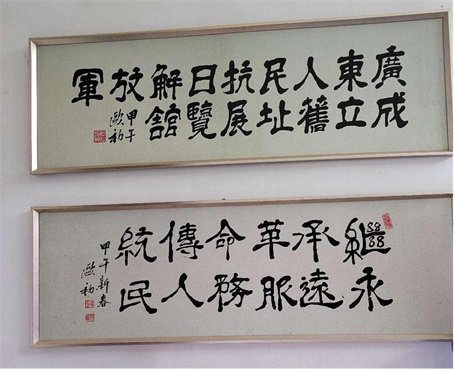 廣東人民抗日解放軍
成立舊址展覽館
甲午
歐初
繼承革命傳統
永遠服務人民
甲午新春
歐初